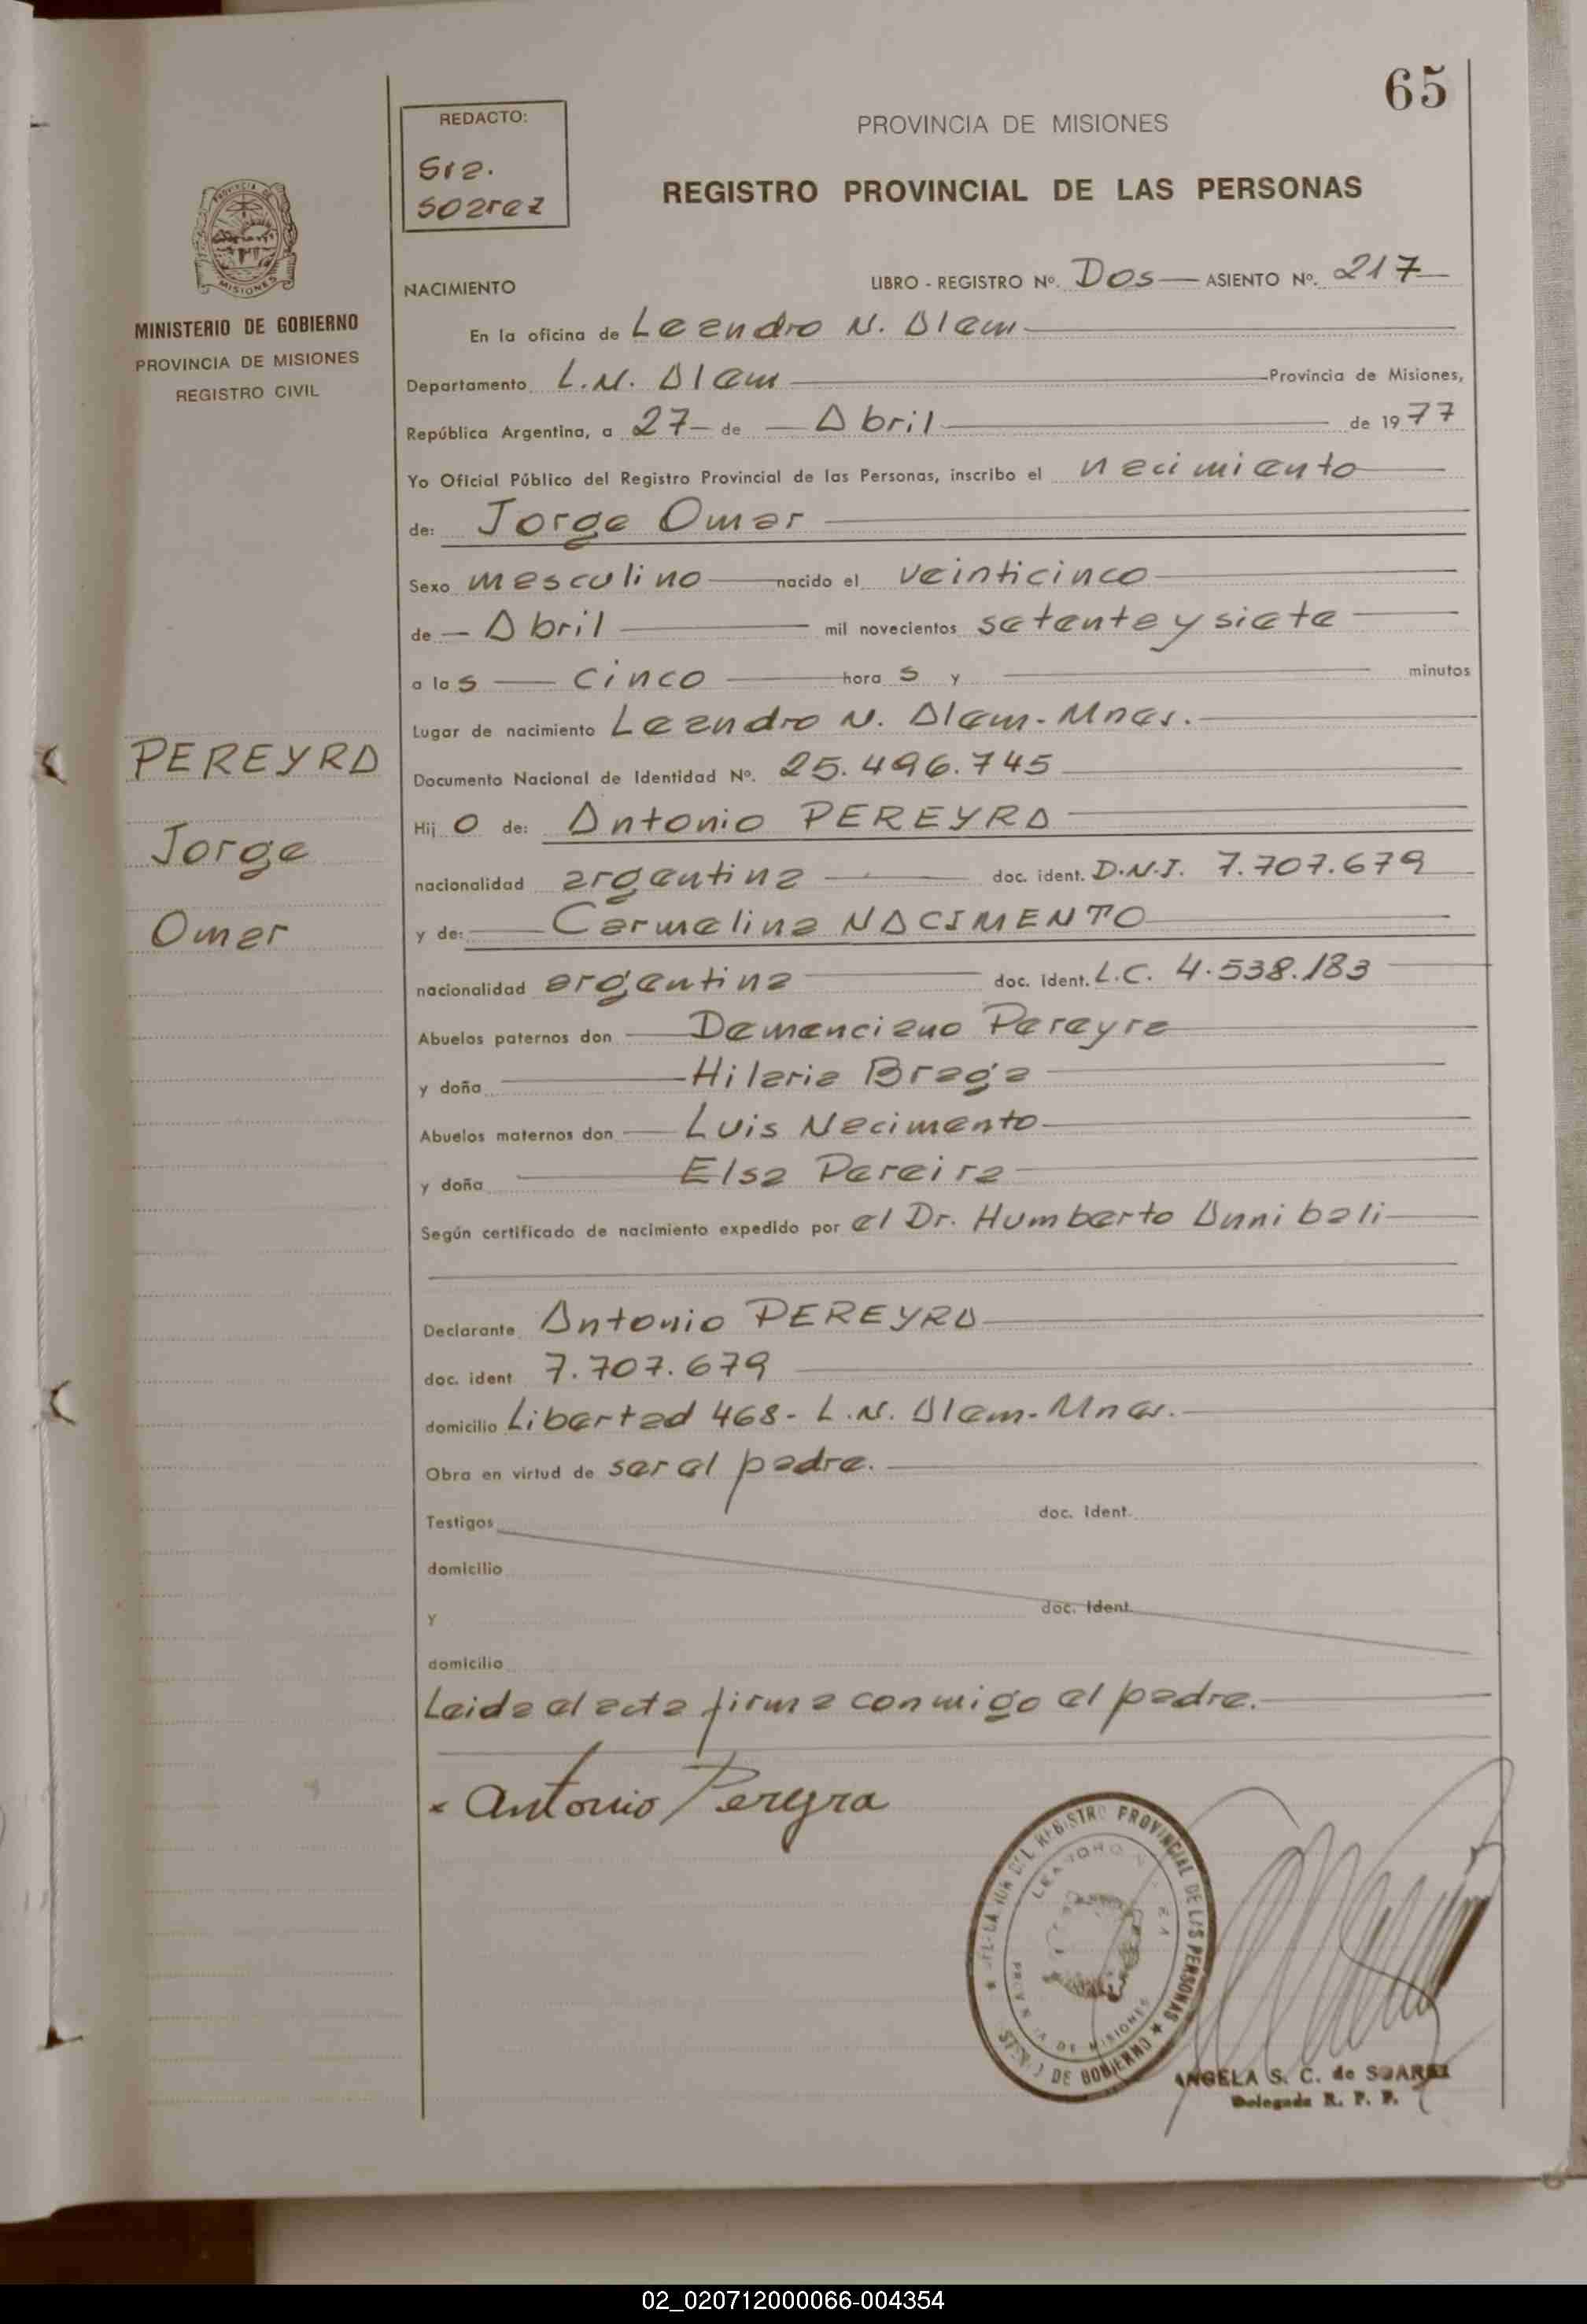 65
REDACTO:
Sra.
Soarez
PROVINCIA DE MISIONES
REGISTRO PROVINCIAL DE LAS PERSONAS
MINISTERIO DE GOBIERNO
PROVINCIA DE MISIONES
REGISTRO CIVIL
NACIMIENTO
LIBRO - REGISTRO Nº. Dos ASIENTO Nº. 217
En la oficina de Leandro N. Alem
Departamento L.N. Alem Provincia de Misiones,
República Argentina, a 27 de Abril de 1977
Yo Oficial Público del Registro Provincial de las Personas, inscribo el nacimiento
de: Jorge Omar
Sexo masculino nacido el veinticinco
de Abril mil novecientos setenta y siete
a las cinco horas y minutos
Lugar de nacimiento Leandro N. Alem - Mnes.
PEREYRA
Jorge
Omar
Documento Nacional de Identidad Nº. 25.496.745
Hijo de: Antonio PEREYRA
nacionalidad argentina doc. ident. D.N.I. 7.707.679
y de: Carmelina NACIMENTO
nacionalidad argentina doc. ident. L.C. 4.538.183
Abuelos paternos don Demenciano Pereyra
y doña Hilaria Braga
Abuelos maternos don Luis Nacimento
y doña Elsa Pereira
Según certificado de nacimiento expedido por el Dr. Humberto Annibali
Declarante Antonio PEREYRA
doc. ident. 7.707.679
domicilio Libertad 468 - L.N. Alem - Mnes.
Obra en virtud de ser el padre.
Testigos doc. ident.
domicilio
y doc. ident.
domicilio
Leida el acta firma conmigo el padre.
Antonio Pereyra
DEL REGISTRO PROVINCIAL DE LAS PERSONAS
DE GOBIERNO
LEANDRO N.
DE MISIONES
ANGELA S. C. de SUAREZ
Delegada R. P. P.
02_020712000066-004354